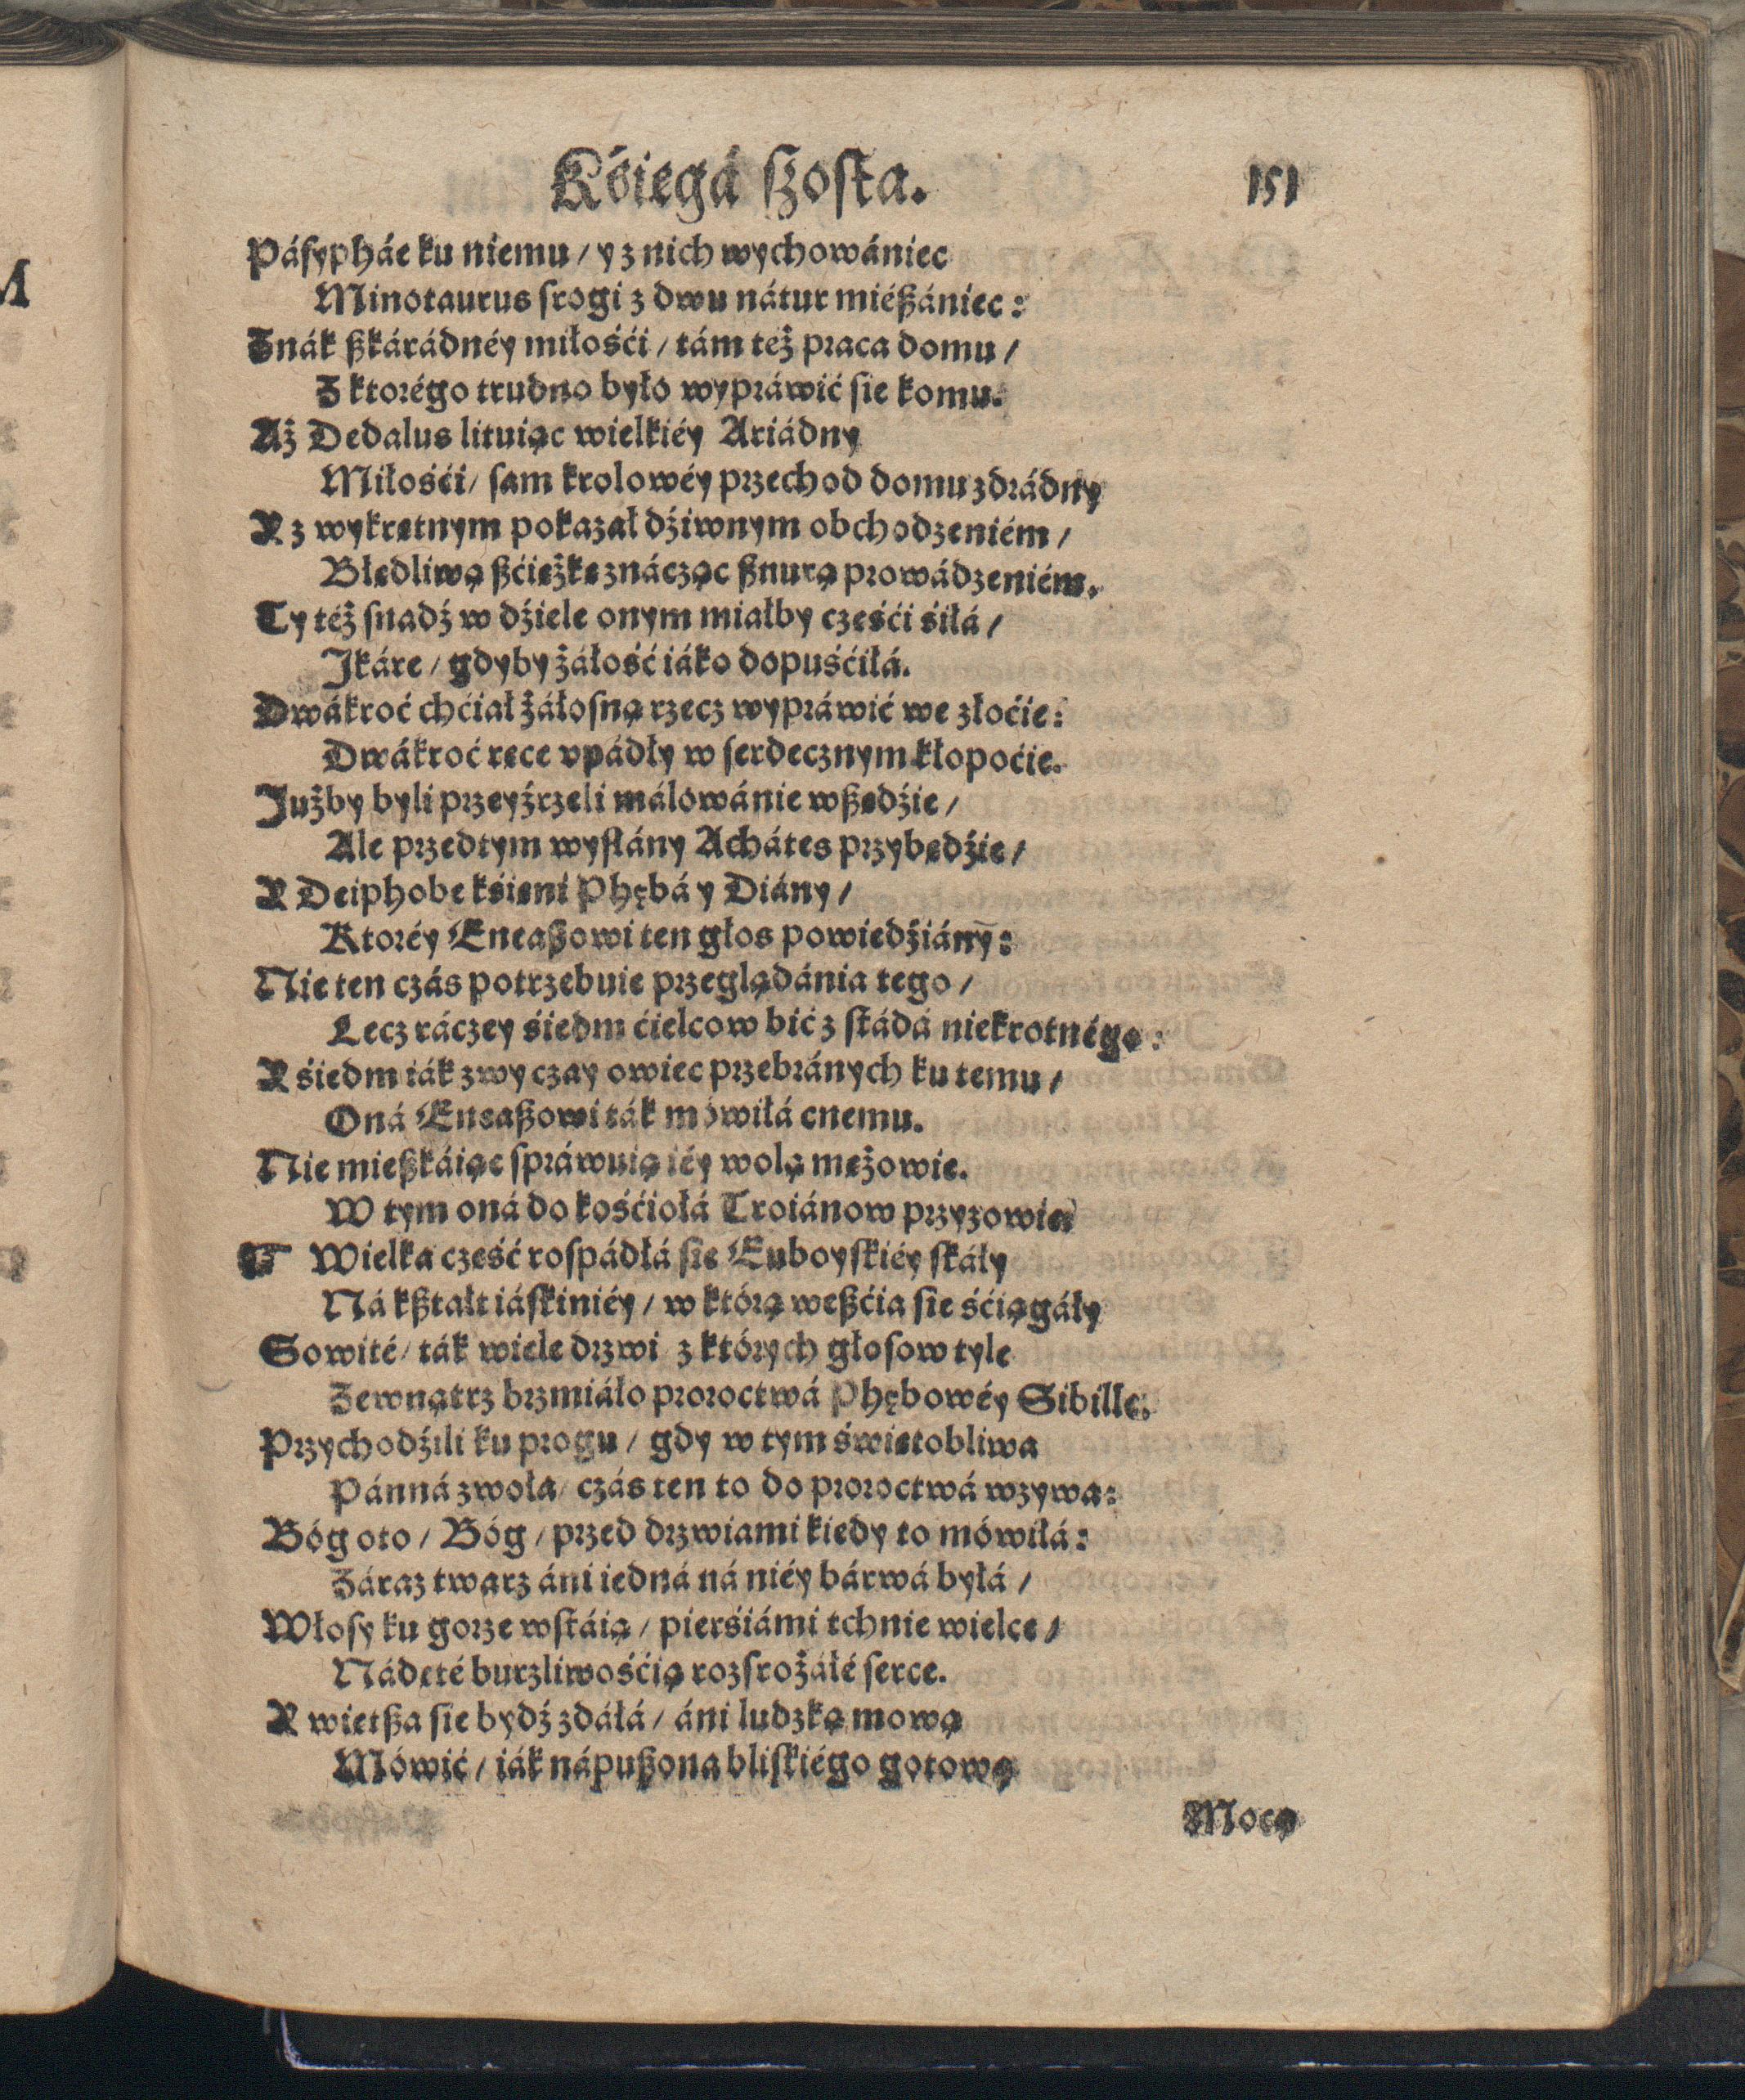 Kśięgá szosta. 151
Pásypháe ku niemu / y z nich wychowániec
Minotaurus srogi z dwu nátur miészániec:
Znák szkárádnéy miłośći / tám też praca domu /
Z ktorégo trudno było wypráwić sie komu.
Aż Dedalus lituiąc wielkiéy Ariádny
Miłośći / sam krolowéy przechod domu zdrádny
Y z wykrętnym pokazał dźiwnym obchodzeniém /
Błędliwą szćieżkę znácząc sznurą prowádzeniém.
Ty téż snadź w dźiele onym miałby częśći śiłá /
Jkáre / gdyby żáłość iáko dopuśćiłá.
Dwákroć chćiał żáłosną rzecz wypráwić we złoćie:
Dwákroć ręce vpádły w serdecznym kłopoćie.
Jużby byli przeyźrzeli málowánie wszędźie /
Ale przedtym wysłány Achátes przybędźie /
Y Deiphobe kśieni Phębá y Diány /
Ktoréy Eneaszowi ten głos powiedźiány:
Nie ten czás potrzebuie przeglądánia tego /
Lecz ráczey śiedm ćielcow bić z stádá niekrotnégo:
Y śiedm iák zwyczay owiec przebránych ku temu /
Oná Eneaszowi ták mówiłá cnemu.
Nie mieszkáiąc spráwuią iéy wolą mężowie.
W tym oná do kośćiołá Troiánow przyzowie.
Wielka część rospádłá się Euboyskiéy skáły
Ná kształt iáskiniéy / w którą weszćia sie śćiągáły
Sowité / ták wiele drzwi z których głosow tyle
Zewnątrz brzmiáło proroctwá Phębowéy Sibille.
Przychodźili ku progu / gdy w tym świętobliwa
Pánná zwoła / czás ten to do proroctwá wzywa:
Bóg oto / Bóg / przed drzwiami kiedy to mówiłá:
Záraz twarz áni iedná ná niéy bárwá byłá /
Włosy ku gorze wstáią / pierśiámi tchnie wielce /
Nádęté burzliwośćią rozsrożáłé serce.
Y więtsza sie bydź zdáłá / áni ludzką mową
Mówić / iák nápuszona bliskiégo gotową
Mocą